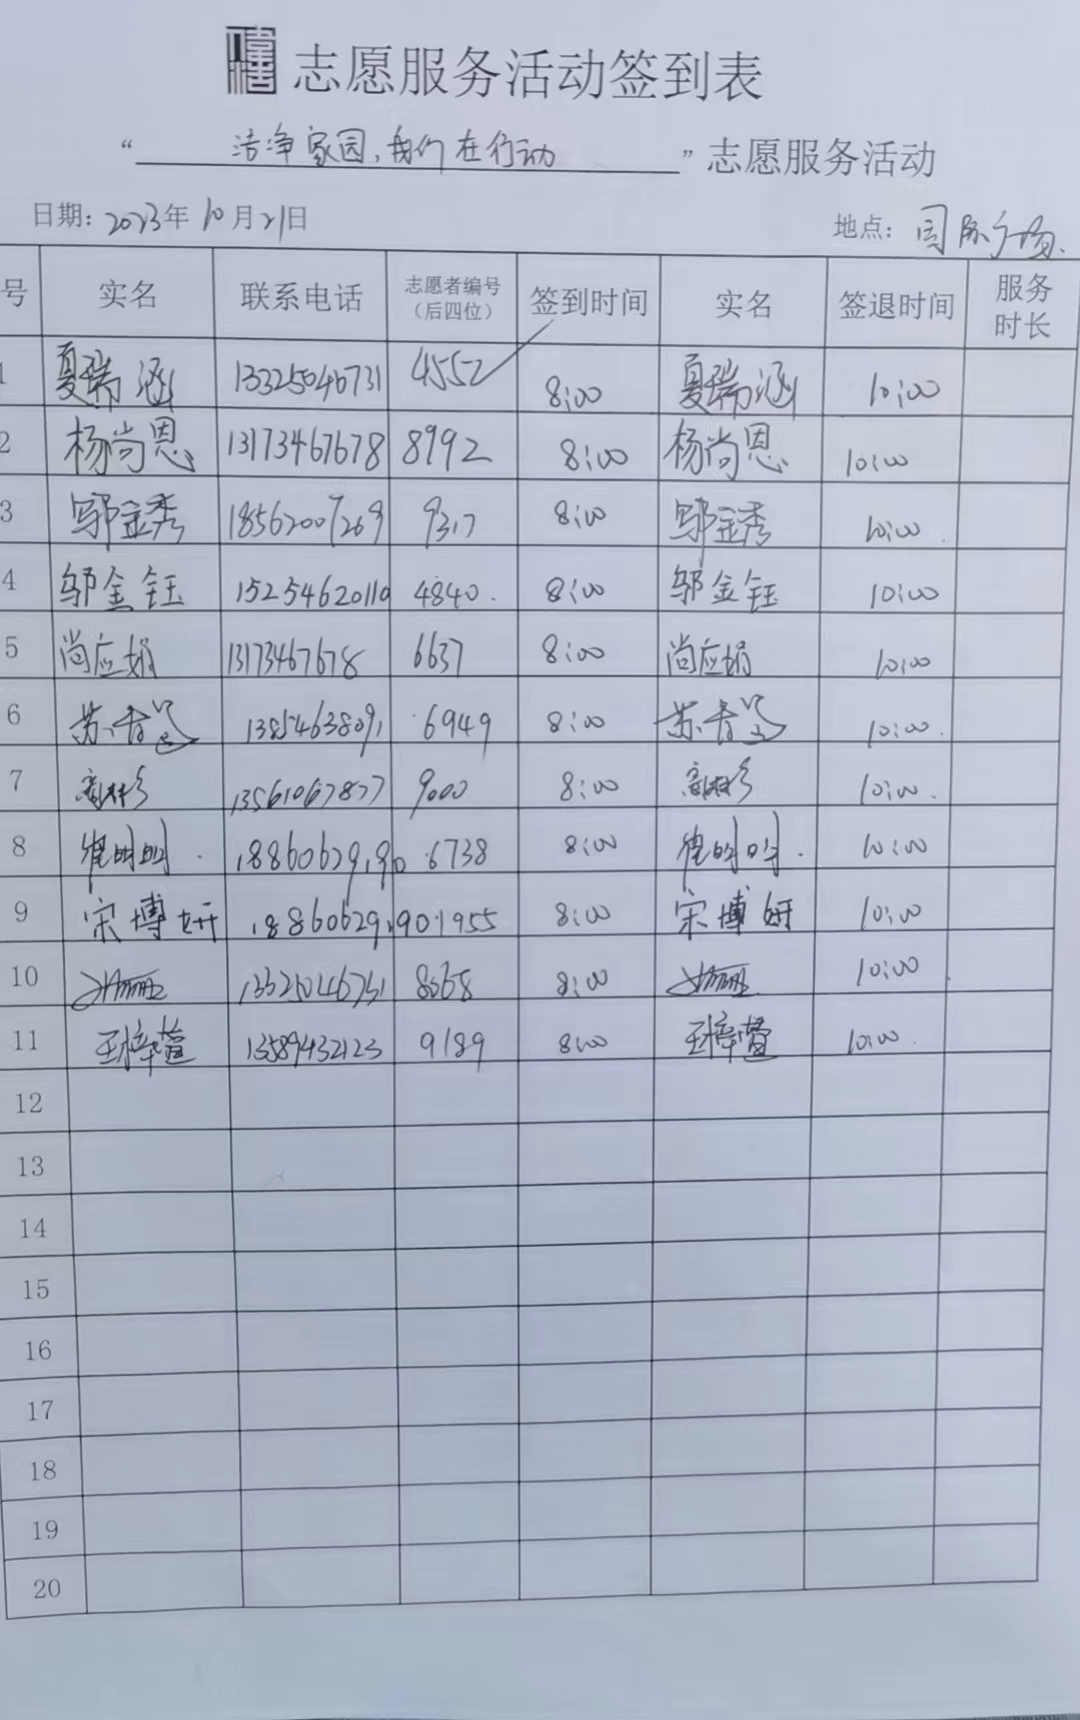 志愿服务活动签到表
“洁净家园,我们在行动”志愿服务活动
日期:2023年10月21日 地点:国际广场.
号 实名 联系电话 志愿者编号(后四位) 签到时间 实名 签退时间 服务时长
1 夏瑞涵 13325046731 4552 8:00 夏瑞涵 10:00
2 杨尚恩 13173467678 8992 8:00 杨尚恩 10:00
3 邬金秀 18562007269 9317 8:00 邬金秀 10:00
4 邬金钰 15254620110 4840 8:00 邬金钰 10:00
5 尚应娟 13173467678 6637 8:00 尚应娟 10:00
6 苏 13854638091 6949 8:00 苏 10:00
7 13561067877 9000 8:00 10:00
8 崔明明 18860629190 6738 8:00 崔明明 10:00
9 宋博妍 18860629190 1955 8:00 宋博妍 10:00
10 13325046731 8:00 10:00
11 王梓萱 13589432123 9189 8:00 王梓萱 10:00
12
13
14
15
16
17
18
19
20